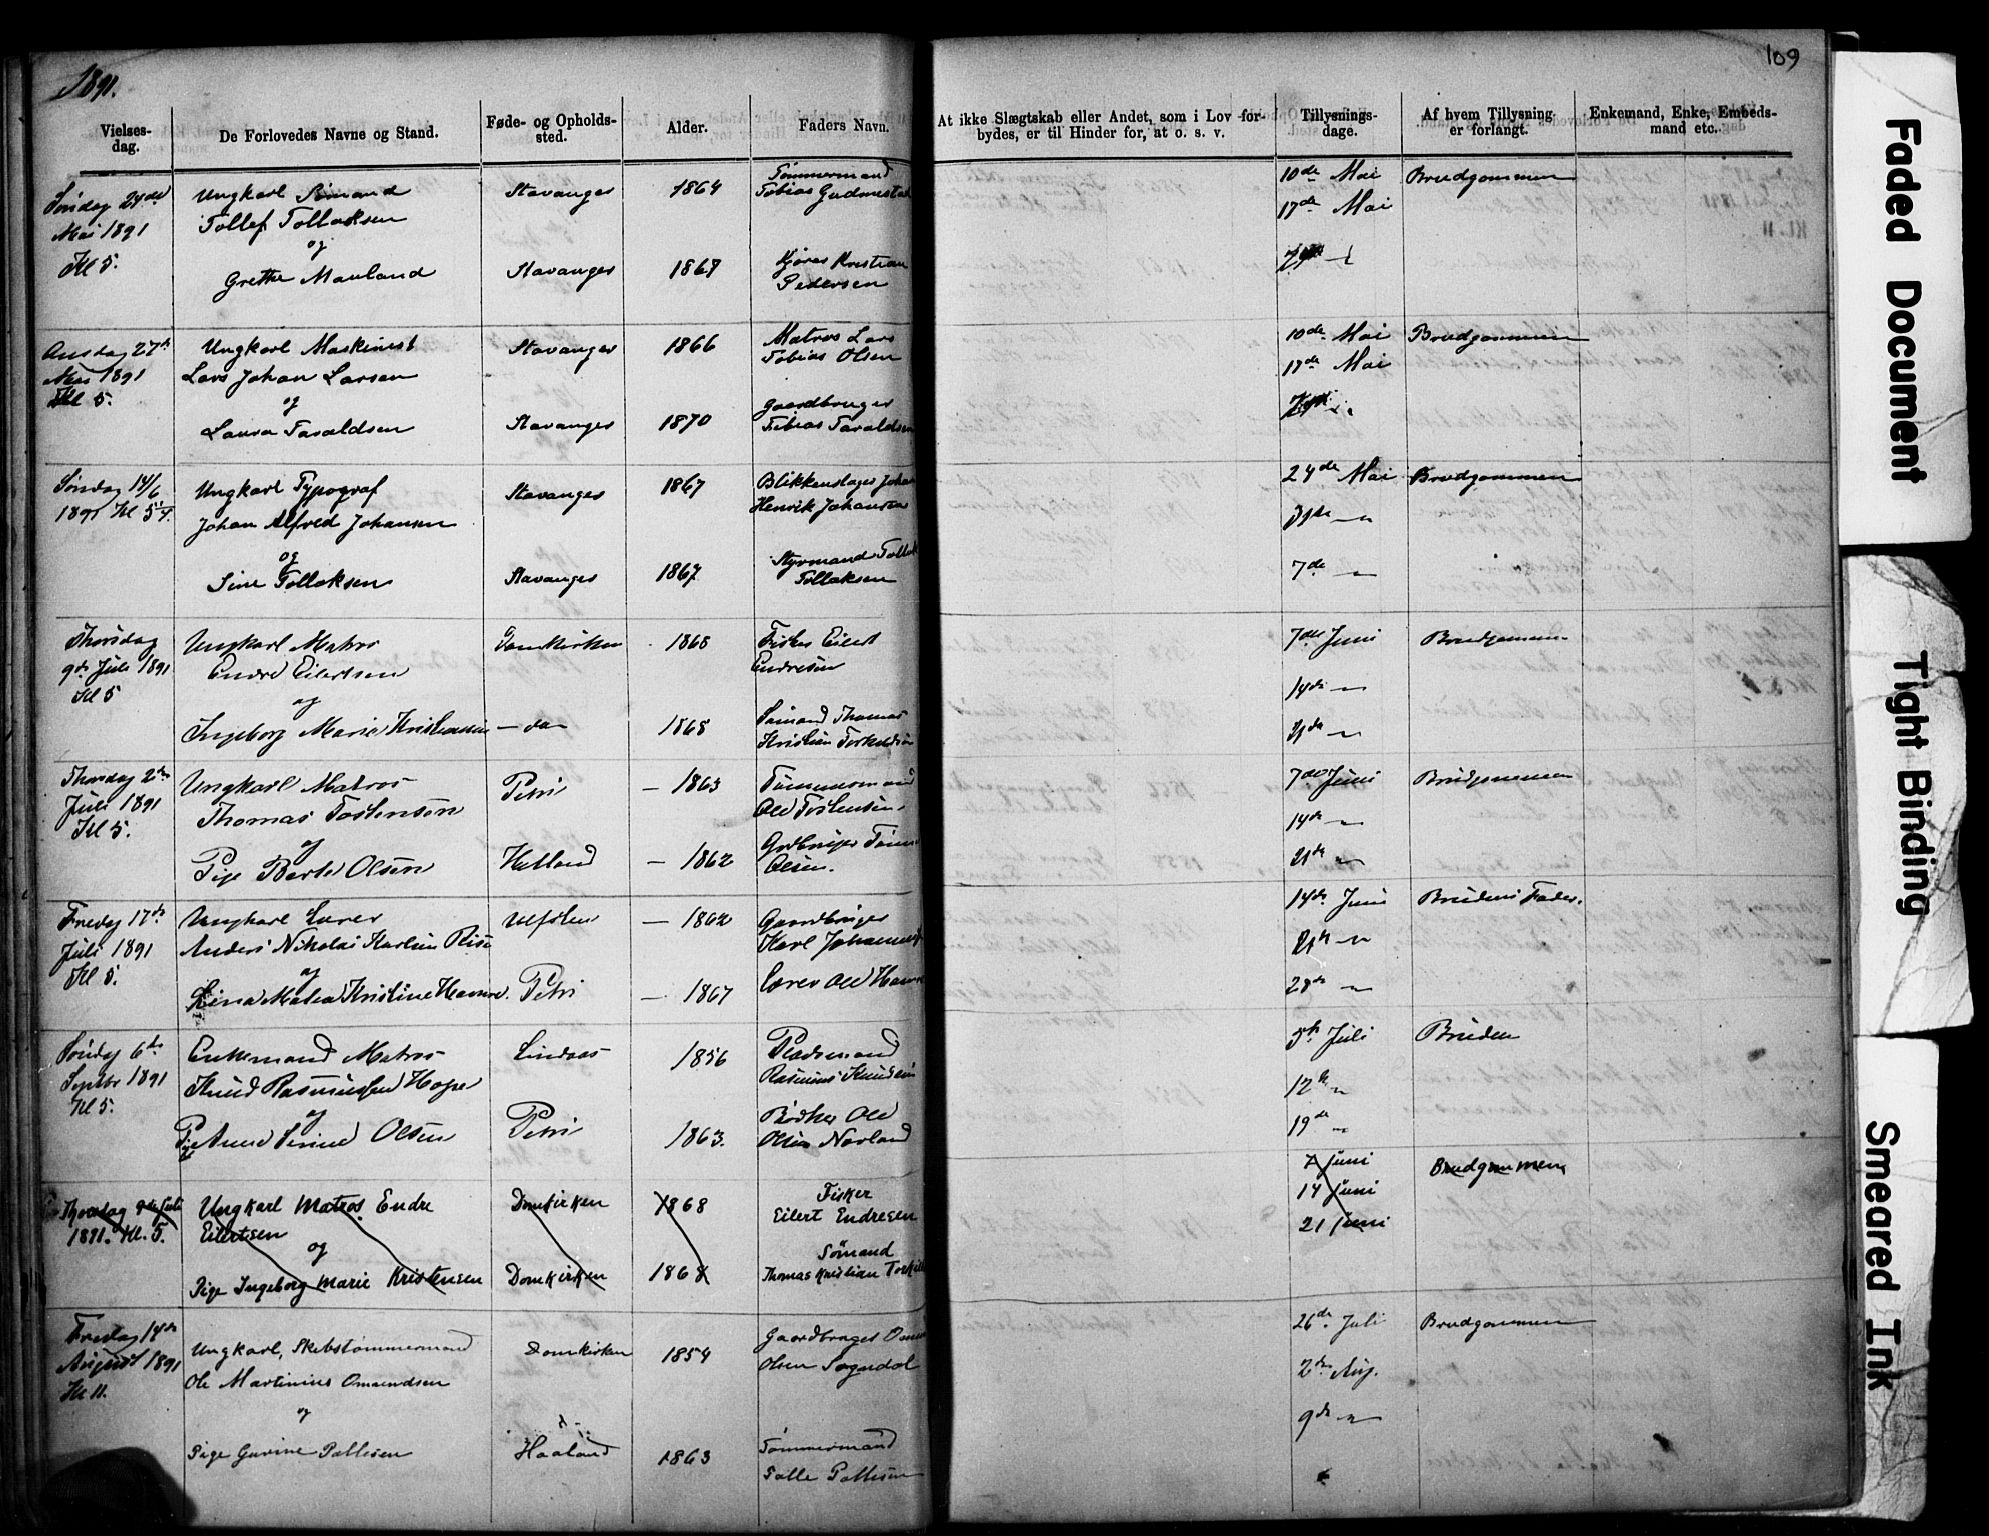 1891.
109
Vielses-
dag.
De Forlovedes Navne og Stand.
Føde- og Opholds-
sted.
Alder.
Faders Navn.
At ikke Slægtskab eller Andet, som i Lov for-
bydes, er til Hinder for, at o. s. v.
Tillysnings-
dage.
Af hvem Tillysning
er forlangt.
Enkemand, Enke, Embeds-
mand etc.
Søndag 24de
Mai 1891
Kl 5.
Ungkarl Sømand
Tollef Tollaksen
og
Grethe Mauland
Stavanger
Stavanger
1864
1867
Tømmermand
Tobias Gudmestad
Kristian
Pedersen
10de Mai
17de Mai
Brudgommen
Onsdag 27de
Mai 1891
Kl 5.
Ungkarl Maskinist
Lars Johan Larsen
og
Laura Taraldsen
Stavanger
Stavanger
1866
1870
Matros Lars
Tobias Olsen
Gaardbruger
Tobias Taraldsen
10de Mai
17de Mai
Brudgommen
Søndag 14/6
1891 Kl 5
Ungkarl Typograf
Johan Alfred Johansen
og
Sine Tollaksen
Stavanger
Stavanger
1867
1867
Blikkenslager Johan
Henrik Johansen
Styrmand Tollak
Tollaksen
24de Mai
31te "
7de "
Brudgommen
Thorsdag
9de Juli 1891
Kl 5
Ungkarl Matros
Endre Eilertsen
og
Ingeborg Marie Kristensen
Domkirken
- do -
1868
1868
Fisker Eilert
Endresen
Sømand Thomas
Kristian Torkildsen
7de Juni
14de "
21de "
Brudgommen
Thorsdag 2den
Juli 1891
Kl 5.
Ungkarl Matros
Thomas Tostensen
og
Pige Berte Olsen
Petri
Hetland
- 1863
- 1862
Tømmermand
Ole Tostensen
Olsen.
7de Juni
14de "
21de "
Brudgommen
Fredag 17de
Juli 1891
Kl 5.
Ungkarl Lærer
Anders Nikolai Karlsen Riise
og
Lina Malea Kristine Hamre.
Ulfsten
Petri
- 1862
- 1867
Gaardbruger
Karl Johannes
Lærer Ole Hamre
14de Juni
21de "
28de "
Brudens Fader.
Søndag 6te
Septbr 1891
Kl 5.
Enkemand Matros
Knud Rasmussen Hope
og
Pige Anne Serine Olsen
Lindaas
Petri
1856
1863.
Pladsmand
Rasmus Knudsen
Bødker Ole
Olsen Norland
5te Juli
12te "
19de "
Bruden
Thorsdag 9de Juli
1891. Kl. 5.
Ungkarl Matros Endre
Eilertsen
og
Pige Ingeborg Marie Kristensen
Domkirken
Domkirken
1868
1868
Fisker
Eilert Endresen
Sømand
Thomas Kristian Torkild
7 Juni
14 Juni
21 Juni
Brudgommen
Fredag 14de
August 1891
Kl 11.
Ungkarl, Skibstømmermand
Ole Martinius Omundsen
og
Pige Gurine Pallesen
Domkirken
Haaland
1854
1863
Gaardbruger
Olsen Sogndal
Tømmermand
Palle Pallesen
26de Juli
2den Aug.
9de "
Brudgommen
Faded Document
Tight Binding
Smeared Ink